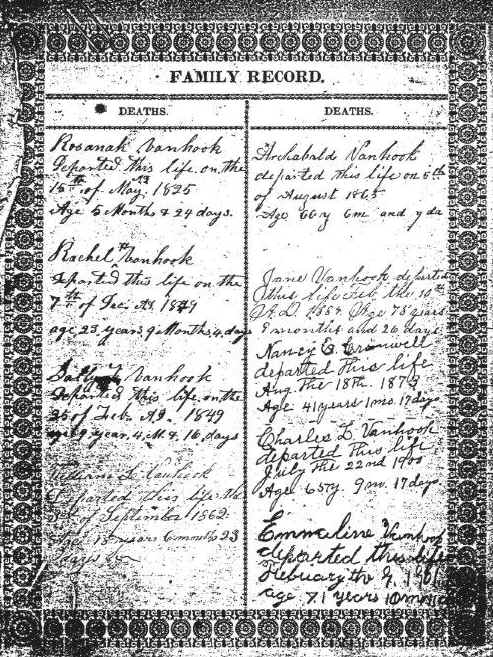 FAMILY RECORD.
DEATHS.
Rosanah Vanhook
departed this life on the
15th of May 1825
Age 5 Months & 24 days.
Rachel Vanhook
departed this life on the
7th of Dec. AD. 1849
age 23 years 9 Months 4 days
Vanhook
departed this life on the
of Feb. AD. 1849
9 year. 4. M. & 16. days
William L. Vanhook
Departed this life the
of September 1862
Age years 6 months 23
days
DEATHS.
Archabald Vanhook
departed this life on 5th
of August 1865
Age 66 y 6 m and 4 da
Jane Vanhook departed
this life the 10th
A.D. Age 78 years
8 months and 26 days
Nancy E. Cromwell
departed this life
Aug. the 18th. 1879
Age 41 years 1 mo. 17 days
Charles L. Vanhook
departed this life
July the 22nd 1900
Age 65 y. 9 m. 17 days.
Emmaline Vanhook
departed this life
February the 9, 1901
age 71 years 10 m